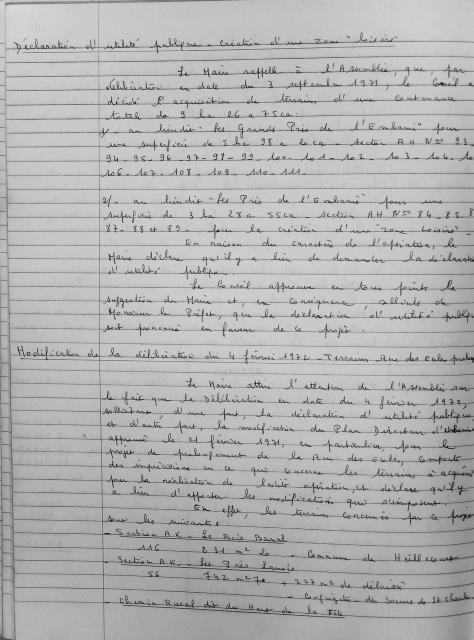 Déclaration d'utilité publique - Création d'une zone "loisirs"
Le Maire rappelle à l'Assemblée, que, par
délibération en date du 3 septembre 1971, le Conseil a
décidé l'acquisition de terrains d'une contenance
totale de 9 ha 26 a 75 ca :
1/- au lieudit "Les Grands Prés de l'Embanie" pour
une superficie de 5 ha 98 a 20 ca - section AH Nos 93-
94-95-96-97-98-99-100-101-102-103-104-10
106-107-108-109-110-111-
2/- au lieudit "Les Prés de l'Embanie" pour une
superficie de 3 ha 28 a 55 ca - section AH Nos 84-85-8
87-88 et 89 - pour la création d'une "zone loisirs" -
En raison du caractère de l'opération, le
Maire déclare qu'il y a lieu de demander la déclarat
d'utilité publique.
Le Conseil approuve en tous points la
suggestion du Maire et, en conséquence, sollicite de
Monsieur le Préfet, que la déclaration d'utilité publiq
soit prononcée en faveur de ce projet.
Modification de la délibération du 4 février 1972 - Terrains Rue des Ecoles
Le Maire attire l'attention de l'Assemblée sur
le fait que la Délibération en date du 4 février 1972,
sollicitant, d'une part, la déclaration d'utilité publique
et d'autre part, la modification du Plan Directeur d'Urbanis
approuvé le 21 février 1971, en particulier, pour le
projet de prolongement de la Rue des Ecoles, comporte
des imprécisions en ce qui concerne les terrains à acquérir
pour la réalisation de ladite opération, et déclare qu'il y
a lieu d'apporter les modifications qui s'imposent.
En effet, les terrains concernés par ce projet
sont les suivants :
- Section AK - Le Bois Banal
116 231 m² 20 - Commune de Heillecourt
- Section AK - Les Prés
56 742 m² 70 + 227 m² de délaissé
- Congrégation des Soeurs de St Charles
- Chemin Rural dit du Haut de la